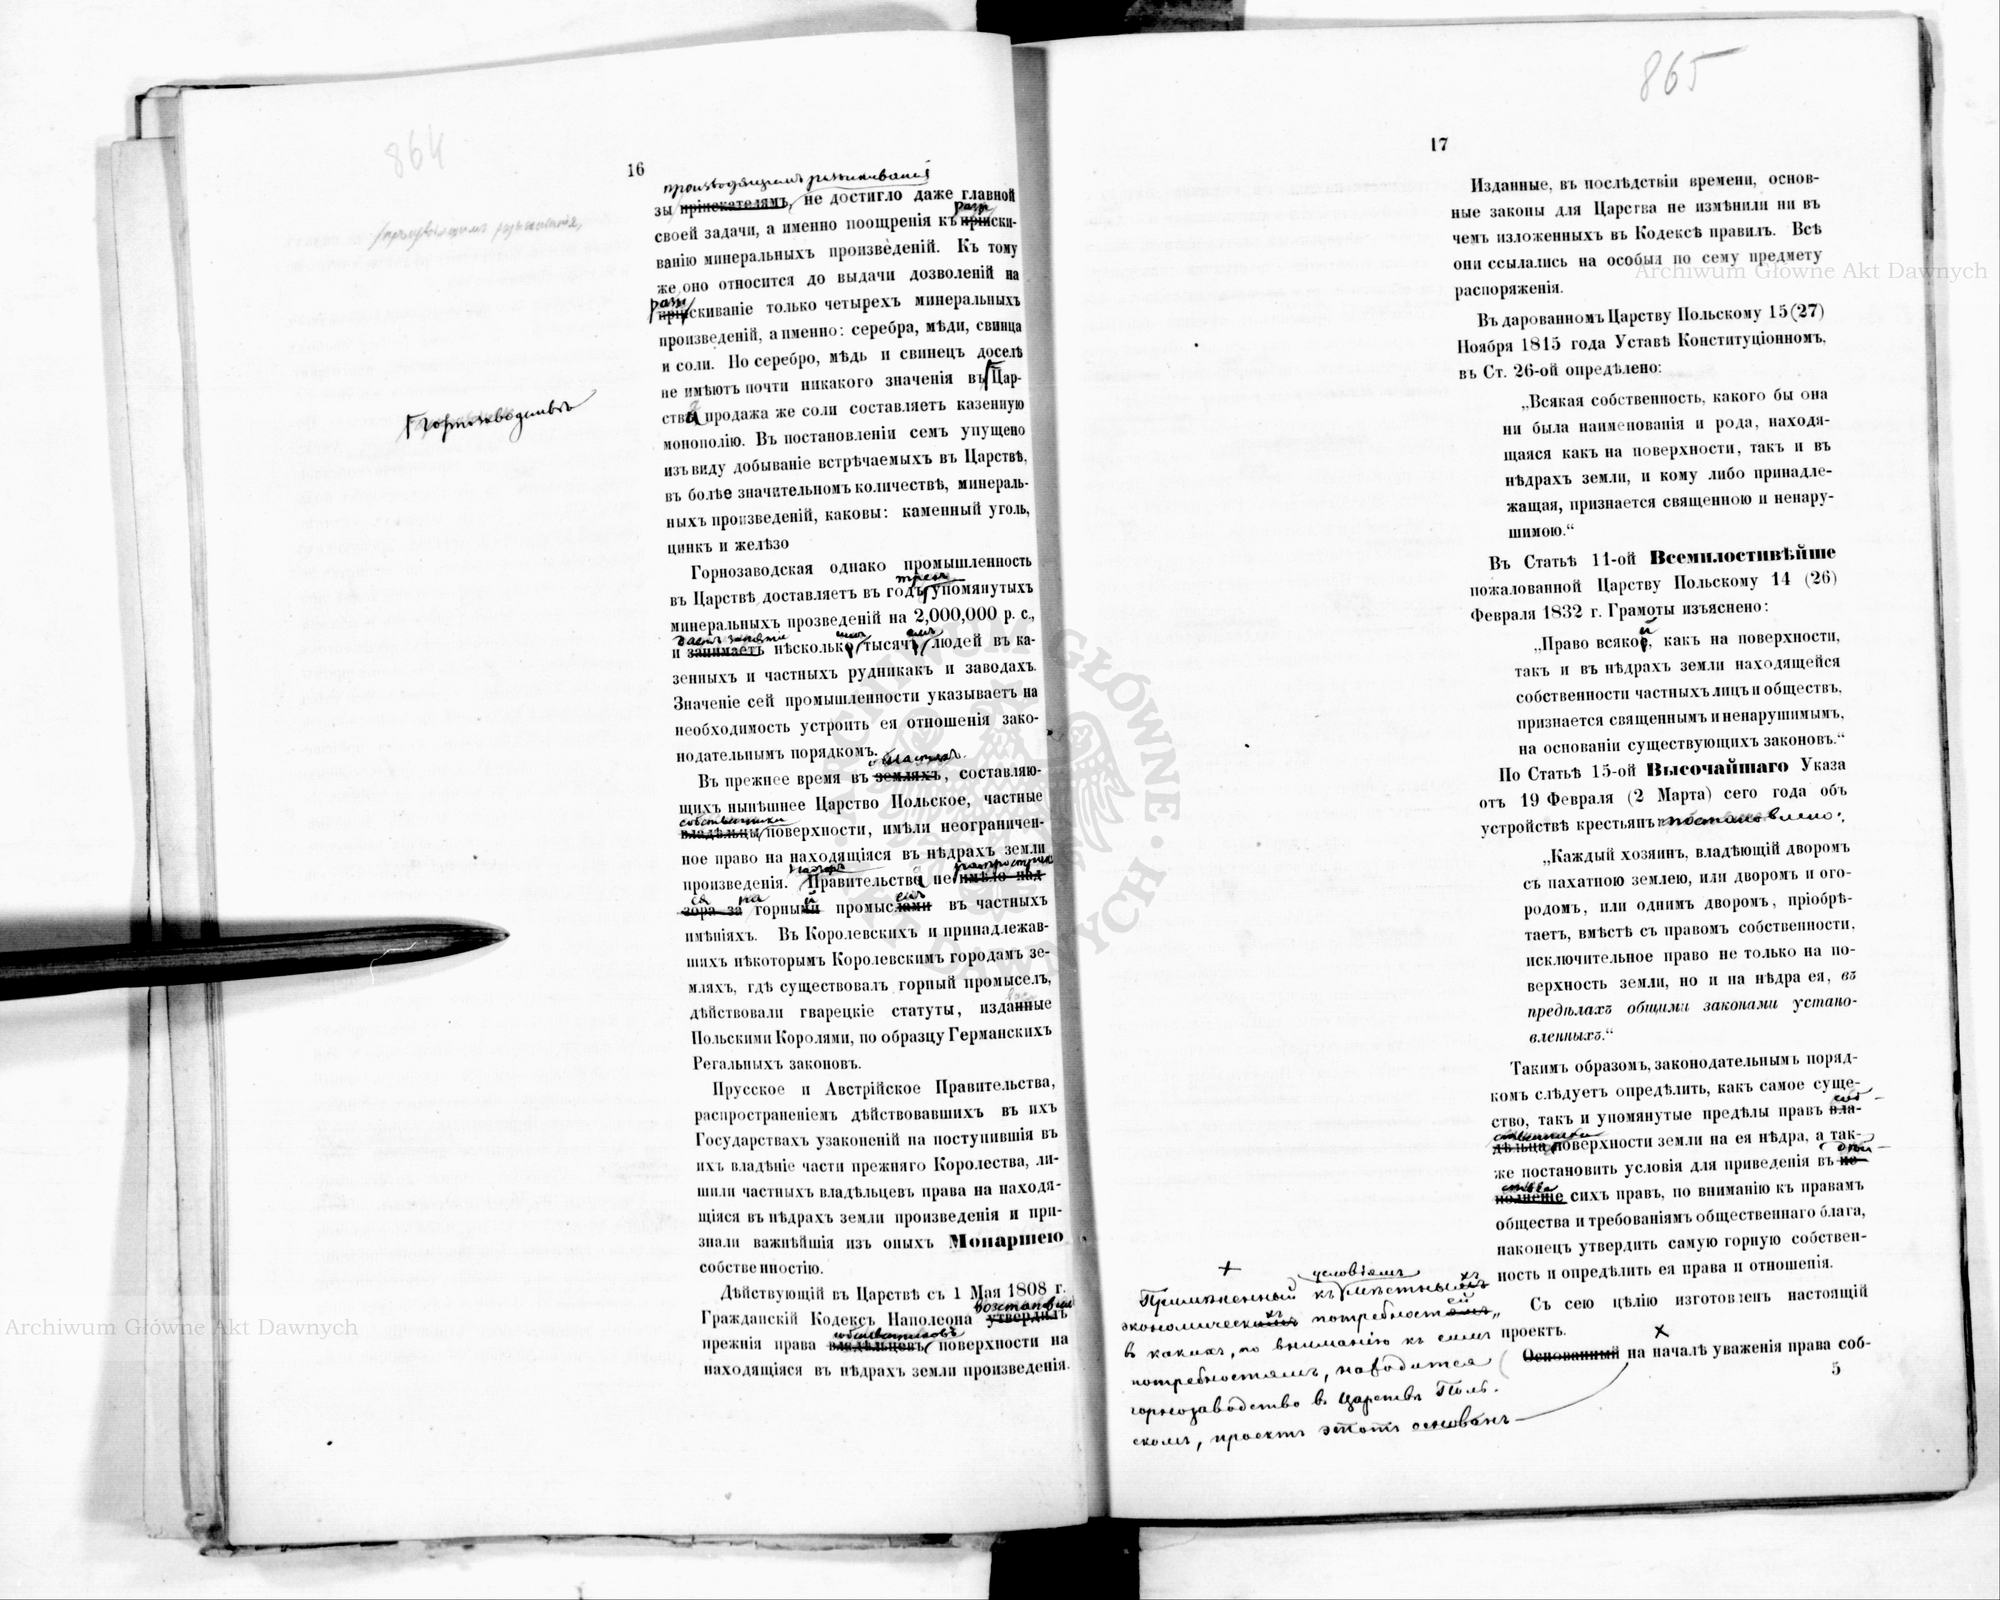 864
16
производящимъ разыскиванія
зы пріискателямъ, не достигло даже главной
разы
своей задачи, а именно поощренія къ пріиски-
ванію минеральныхъ произведеній. Къ тому
же оно относится до выдачи дозволеній на
разы
пріискиваніе только четырехъ минеральныхъ
произведеній, а именно: серебра, мѣди, свинца
и соли. Но серебро, мѣдь и свинецъ доселѣ
не имѣютъ почти никакого значенія въ Цар-
ствѣ, продажа же соли составляетъ казенную
монополію. Въ постановленіи семъ упущено
изъ виду добываніе встрѣчаемыхъ въ Царствѣ,
въ болѣе значительномъ количествѣ, минераль-
ныхъ произведеній, каковы: каменный уголь,
цинкъ и желѣзо
Горнозаводская однако промышленность
трехъ
въ Царствѣ доставляетъ въ годъ упомянутыхъ
минеральныхъ прозведеній на 2,000,000 р. с.,
даетъ занятіе
и занимаетъ нѣсколько тысячъ людей въ ка-
зенныхъ и частныхъ рудникахъ и заводахъ.
Значеніе сей промышленности указываетъ на
необходимость устроить ея отношенія зако-
нодательнымъ порядкомъ.
областяхъ
Въ прежнее время въ земляхъ, составляю-
щихъ нынѣшнее Царство Польское, частные
собственники
владѣльцы поверхности, имѣли неограничен-
ное право на находящіяся въ нѣдрахъ земли
надзоръ распространял
произведенія. Правительства не имѣло над-
ся на й елъ
зора за горными промыслами въ частныхъ
имѣніяхъ. Въ Королевскихъ и принадлежав-
шихъ нѣкоторымъ Королевскимъ городамъ зе-
мляхъ, гдѣ существовалъ горный промыселъ,
дѣйствовали гварецкіе статуты, изданные
Польскими Королями, по образцу Германскихъ
Регальныхъ законовъ.
Прусское и Австрійское Правительства,
распространеніемъ дѣйствовавшихъ въ ихъ
Государствахъ узаконеній на поступившія въ
ихъ владѣніе части прежняго Королества, ли-
шили частныхъ владѣльцевъ права на находя-
щіяся въ нѣдрахъ земли произведенія и при-
знали важнѣйшія изъ оныхъ Монаршею
собственностію.
Дѣйствующій въ Царствѣ съ 1 Мая 1808 г.
возстановил
Гражданскій Кодексъ Наполеона утвердилъ
собственниковъ
прежнія права владѣльцевъ поверхности на
находящіяся въ нѣдрахъ земли произведенія.
865
17
Изданные, въ послѣдствіи времени, основ-
ные законы для Царства не измѣнили ни въ
чемъ изложенныхъ въ Кодексѣ правилъ. Всѣ
они ссылались на особыя по сему предмету
распоряженія.
Въ дарованномъ Царству Польскому 15 (27)
Ноября 1815 года Уставѣ Конституціонномъ,
въ Ст. 26-ой опредѣлено:
„Всякая собственность, какого бы она
ни была наименованія и рода, находя-
щаяся какъ на поверхности, такъ и въ
нѣдрахъ земли, и кому либо принадле-
жащая, признается священною и ненару-
шимою.“
Въ Статьѣ 11-ой Всемилостивѣйше
пожалованной Царству Польскому 14 (26)
Февраля 1832 г. Грамоты изъяснено:
„Право всякой, какъ на поверхности,
такъ и въ нѣдрахъ земли находящейся
собственности частныхъ лицъ и обществъ,
признается священнымъ и ненарушимымъ,
на основаніи существующихъ законовъ.“
По Статьѣ 15-ой Высочайшаго Указа
отъ 19 Февраля (2 Марта) сего года объ
устройствѣ крестьянъ постановлено:
„Каждый хозяинъ, владѣющій дворомъ
съ пахатною землею, или дворомъ и ого-
родомъ, или однимъ дворомъ, пріобрѣ-
таетъ, вмѣстѣ съ правомъ собственности,
исключительное право не только на по-
верхность земли, но и на нѣдра ея, въ
предѣлахъ общими законами устано-
вленныхъ.“
Такимъ образомъ, законодательнымъ поряд-
комъ слѣдуетъ опредѣлить, какъ самое суще-
соб-
ство, такъ и упомянутые предѣлы правъ вла-
ственника
дѣльца поверхности земли на ея нѣдра, а так-
дѣй-
же постановить условія для приведенія въ ис-
ствіе
полненіе сихъ правъ, по вниманію къ правамъ
общества и требованіямъ общественнаго блага,
наконецъ утвердить самую горную собствен-
ность и опредѣлить ея права и отношенія.
Съ сею цѣлію изготовленъ настоящій
проектъ.
Основанный на началѣ уваженія права соб-
5
условіямъ
Примѣненный къ мѣстнымъ
экономическихъ потребностей,
въ какихъ, по вниманію къ симъ
потребностямъ, находится
горнозаводство въ Царствѣ Поль-
скомъ, проектъ этотъ основанъ
Archiwum Główne Akt Dawnych
Archiwum Główne Akt Dawnych
ARCHIWUM GŁÓWNE AKT DAWNYCH